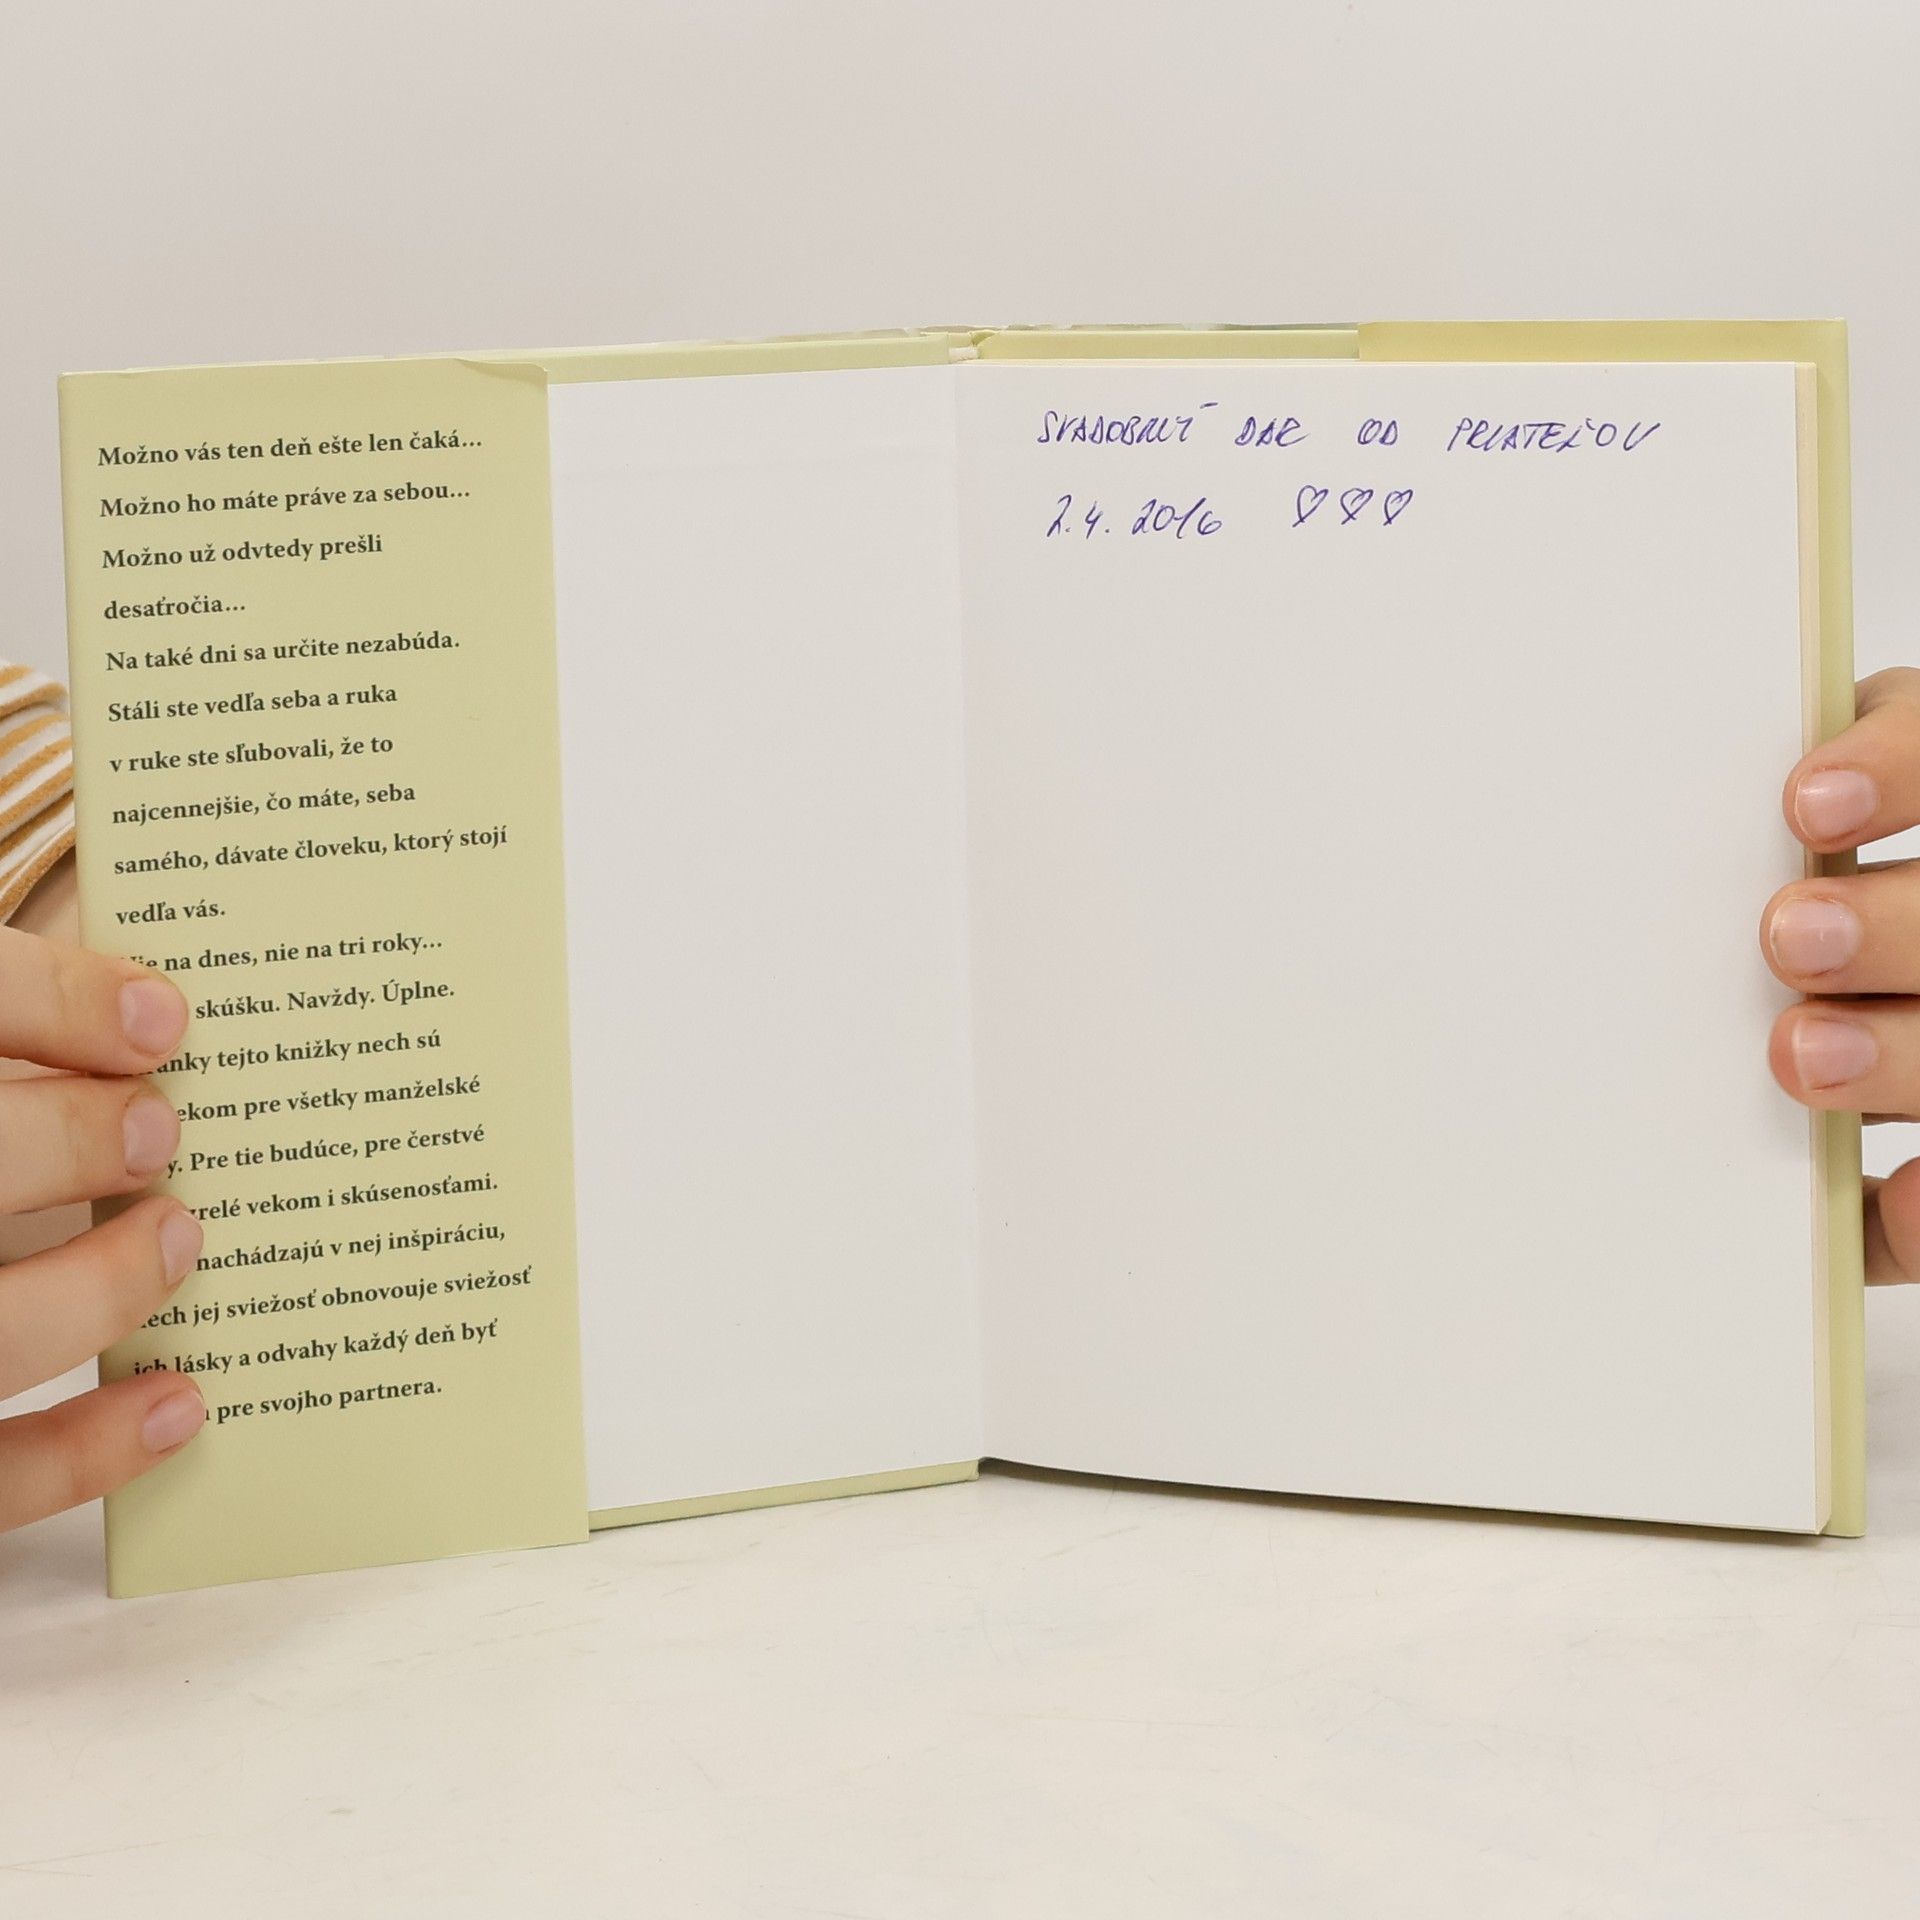 Možno vás ten deň ešte len čaká...
Možno ho máte práve za sebou...
Možno už odvtedy prešli
desaťročia...
Na také dni sa určite nezabúda.
Stáli ste vedľa seba a ruka
v ruke ste sľubovali, že to
najcennejšie, čo máte, seba
samého, dávate človeku, ktorý stojí
vedľa vás.
na dnes, nie na tri roky...
skúšku. Navždy. Úplne.
tejto knižky nech sú
pre všetky manželské
Pre tie budúce, pre čerstvé
vekom i skúsenosťami.
nachádzajú v nej inšpiráciu,
jej sviežosť obnovouje sviežosť
ich lásky a odvahy každý deň byť
pre svojho partnera.
SVADOBNÝ DAR OD PRIATEĽOV
2.4. 2016 ♡♡♡